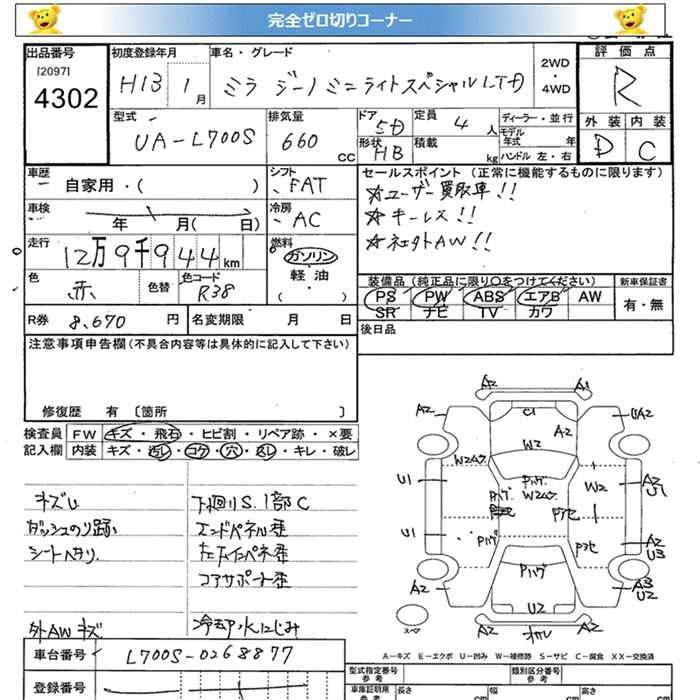 完全ゼロ切りコーナー
出品番号
[2097]
4302
初度登録年月
H13 1月
車名・グレード
ミラ ジーノ ミニライトスペシャルLTD
2WD
・
4WD
評価点
R
外装 内装
D C
型式
UA-L700S
排気量
660 CC
ドア
5D
形状
HB
定員
4人
積載
kg
ディーラー・並行
モデル年式 年
ハンドル 左・右
車歴
自家用・( )
シフト
FAT
車検
年 月( 日)
冷房
AC
走行
12万9千944km
燃料
ガソリン
軽油
( )
色
赤
色替
色コード
R38
R券 8,670 円
名変期限 月 日
セールスポイント(正常に機能するものに限ります)
☆ユーザー買取車!!
☆キーレス!!
☆社外AW!!
装備品(純正品に限り○をつけてください)
PS PW ABS エアB AW
SR ナビ TV カワ
新車保証書
有・無
後日品
注意事項申告欄(不具合内容等は具体的に記入して下さい)
修復歴 有 [箇所 ]
検査員記入欄
FW キズ・飛石・ヒビ割・リペア跡・×要
内装 キズ・汚レ・コゲ・穴・スレ・キレ・破レ
キズ
ダッシュのり跡
シートヘタリ
外AWキズ
下廻りS.1部C
エンドパネル歪
コアサポート歪
冷却水にじみ
A2 A1
A2 C1 UA2
A2
W2
U1 W2 A2
U1
U1 A2
U3
A2 A3
U2
U2
A2 A2
スペア
A-キズ E-エクボ U-凹み W-補修跡 S-サビ C-腐食 XX-交換済
車台番号 L700S-0268877
登録番号
型式指定番号
参考
類別区分番号
参考
車庫証明用
参考
長さ cm 幅 cm 高さ cm